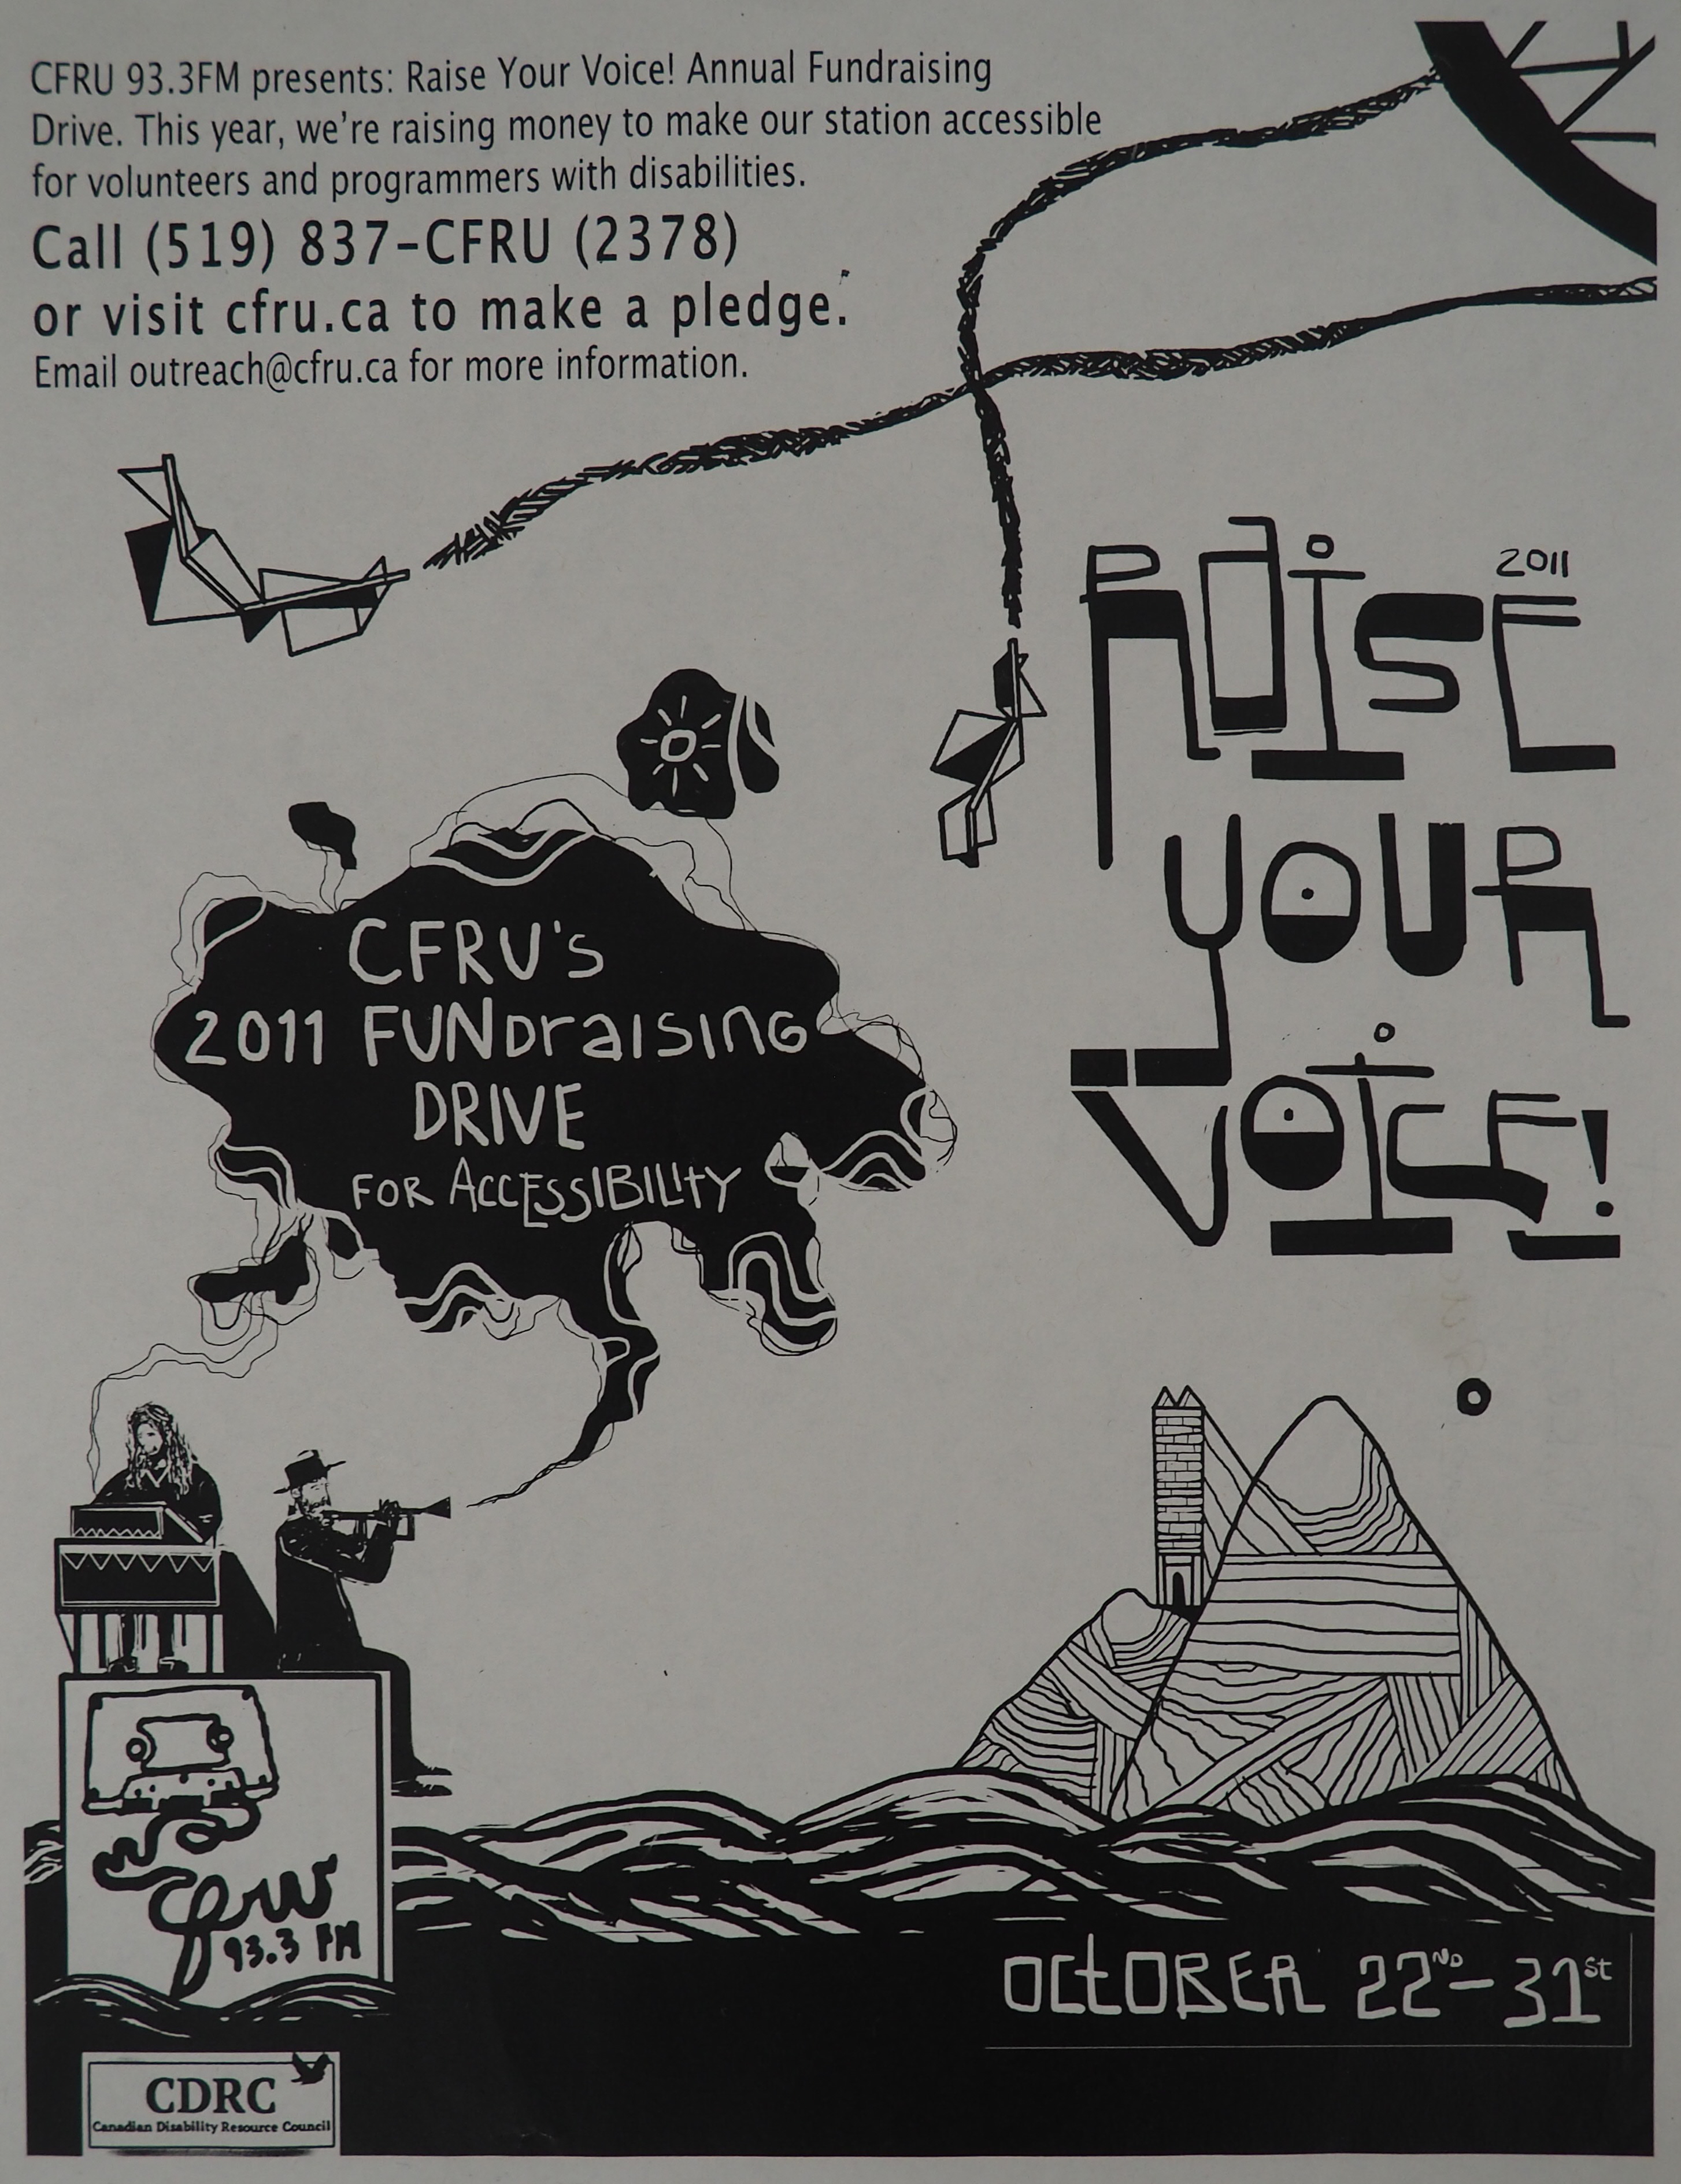 CFRU 93.3FM presents: Raise Your Voice! Annual Fundraising
Drive. This year, we're raising money to make our station accessible
for volunteers and programmers with disabilities.
Call (519) 837-CFRU (2378)
or visit cfru.ca to make a pledge.
Email outreach@cfru.ca for more information.
RAISE
2011
YOUR
VOICE!
CFRU's
2011 FUNDraising
DRIVE
FOR ACCESSIBILITY
cfru
93.3 FM
OCTOBER 22ND - 31st
CDRC
Canadian Disability Resource Council